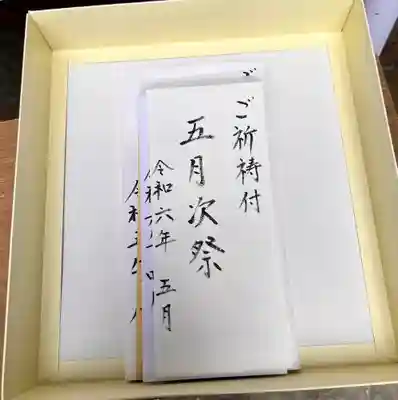 ご祈祷付
五月次祭
令和六年 五月
令和
令和五